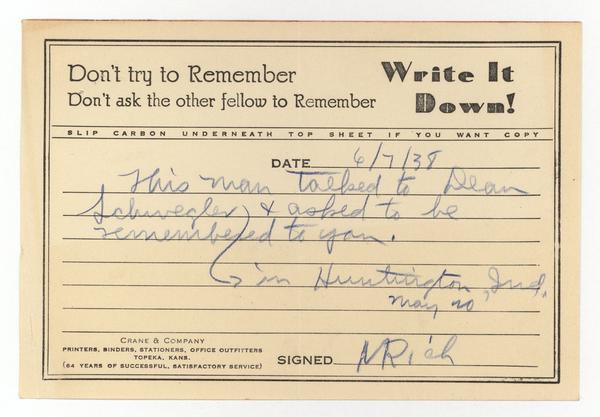 Don't try to Remember
Write It
Don't ask the other fellow to Remember
Down!
SLIP CARBON UNDERNEATH TOP SHEET IF YOU WANT COPY
DATE 6/7/38
This man talked to Dean
Schwegler & asked to be
remembered to you.
in Huntington, Ind.
May 20
CRANE & COMPANY
PRINTERS, BINDERS, STATIONERS, OFFICE OUTFITTERS
TOPEKA, KANS.
(64 YEARS OF SUCCESSFUL, SATISFACTORY SERVICE)
SIGNED NRich